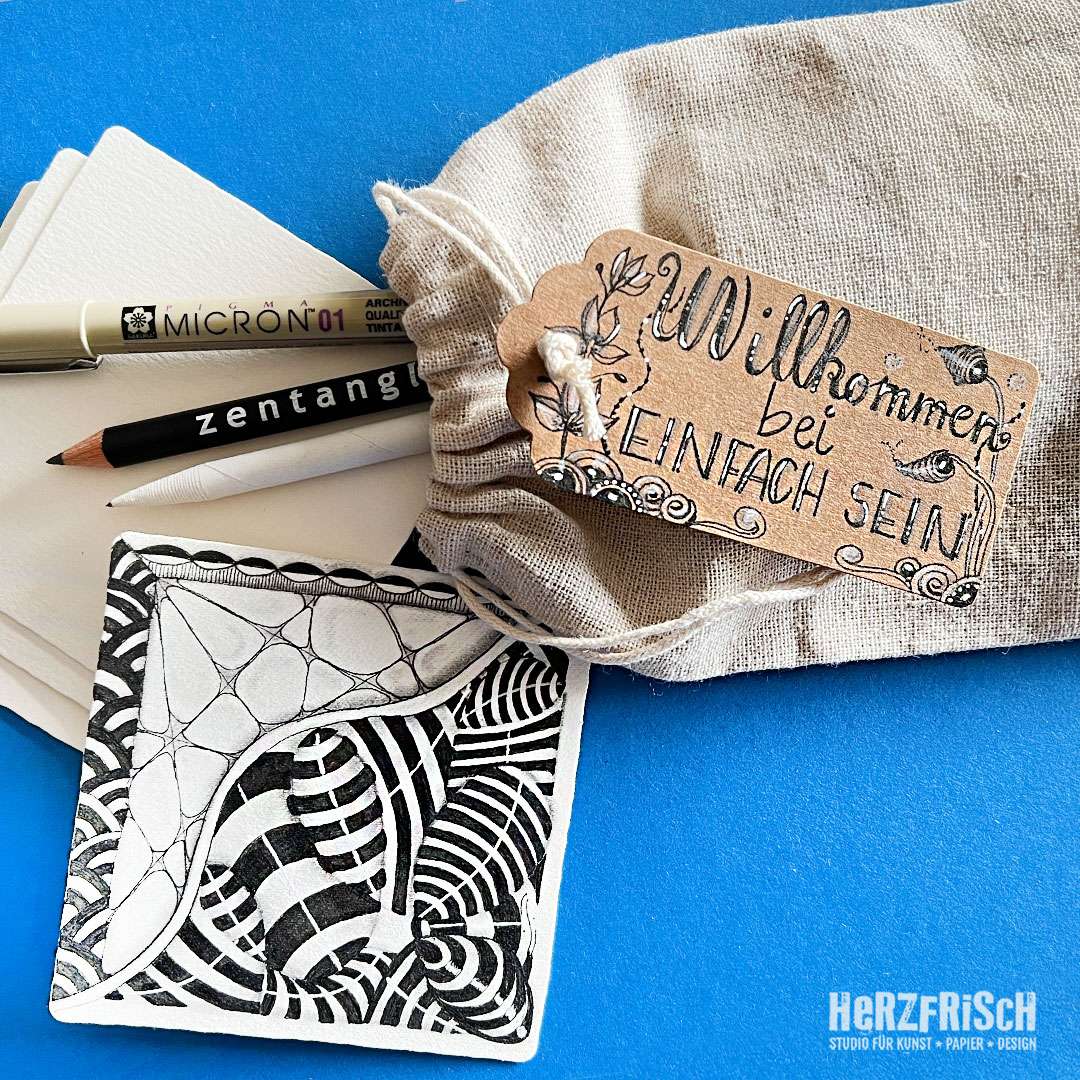 PIGMA
MICRON™ 01
ARCHI
QUAL
TINTA
zentangl
Willkommen
bei
EINFACH SEIN
HeRZFRiScH
STUDIO FÜR KUNST ★ PAPIER ★ DESIGN